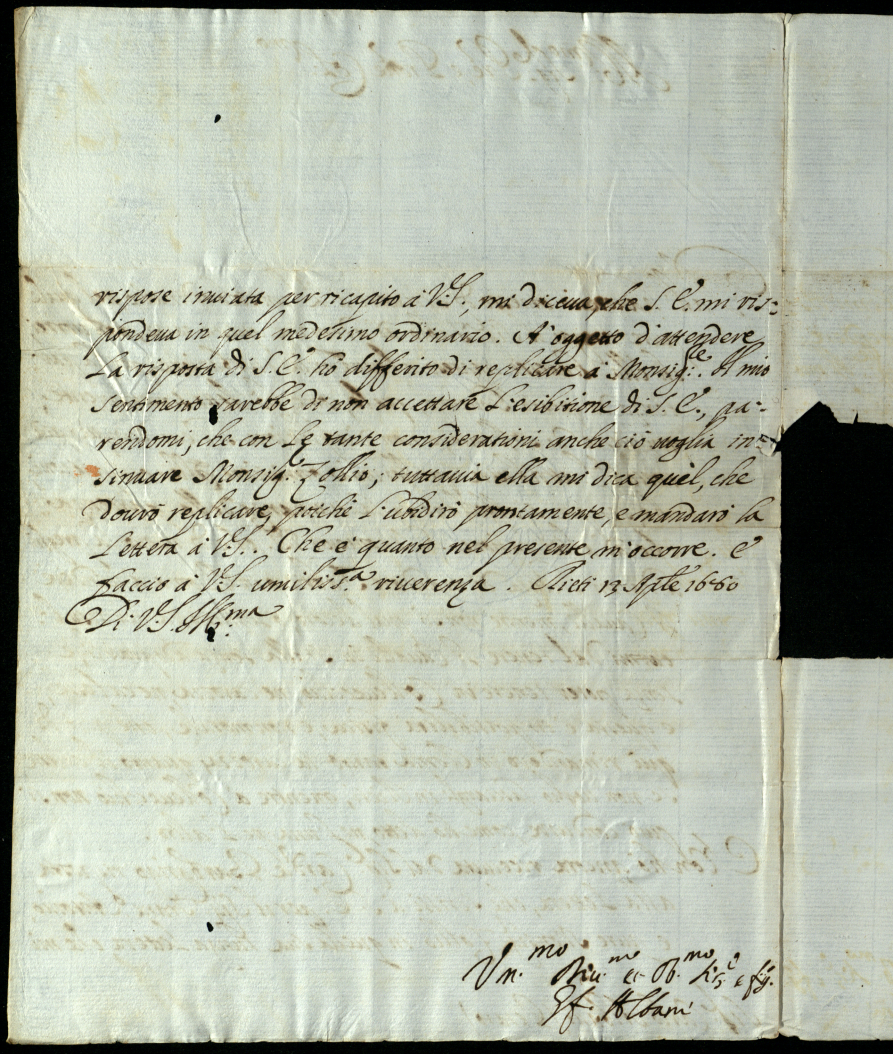 rispose inuiata per ricapito à V.S., mi diceua, che S. E. mi ris-
pondeua in quel medesimo ordinario. A' oggetto d'attendere
La risposta di S. E. hò differito di replicare à Monsig.re. Il mio
sentimento sarebbe di non accettare L'esibitione di S. E., pa-
rendomi, che con Le tante considerationi anche ciò uoglia in-
sinuare Monsig.r Zollio; tuttauia ella mi dica quel, che
dourò replicare, poiche L'ubidirò prontamente, e mandarò la
Lettera à V.S. Che è quanto nel presente m'occorre. E
faccio à V.S. umiliss.a riuerenza. Rieti 13 Aple 1680
Di V.S. Ill.ma
Vn.mo Diu.mo et Ob.mo
Albani